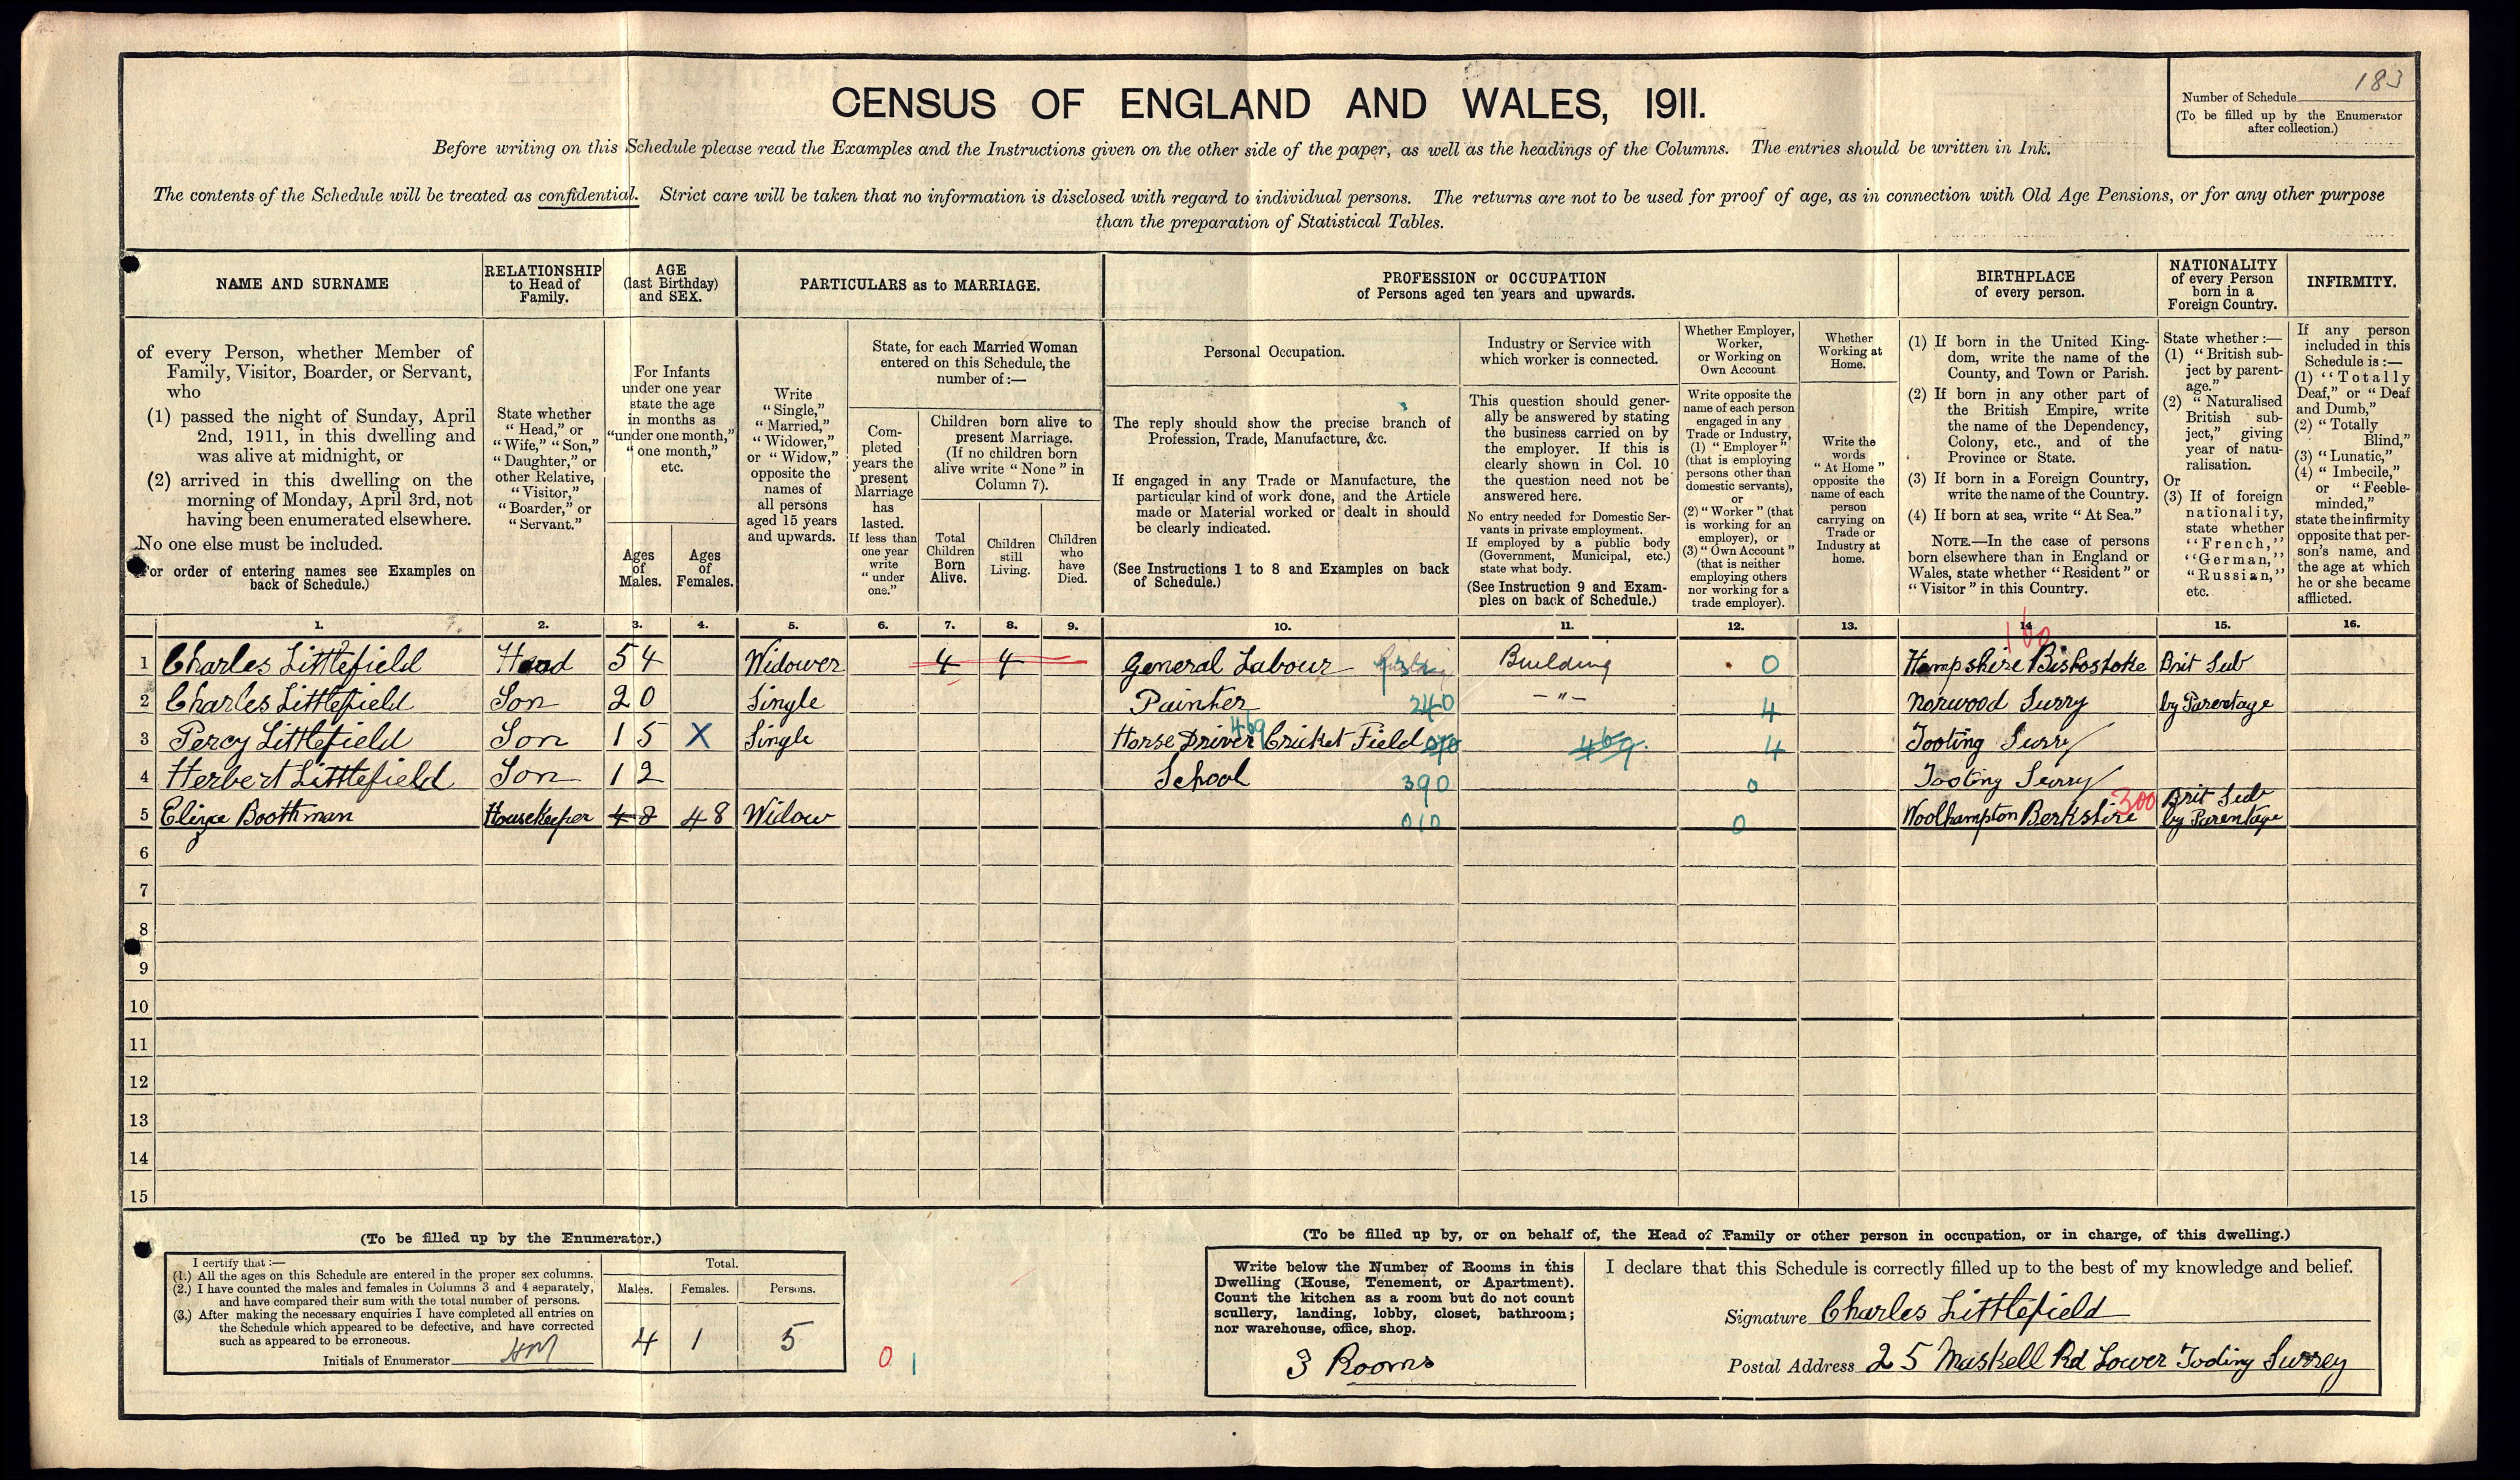 183
Number of Schedule
(To be filled up by the Enumerator
after collection.)
CENSUS OF ENGLAND AND WALES, 1911.
Before writing on this Schedule please read the Examples and the Instructions given on the other side of the paper, as well as the headings of the Columns. The entries should be written in Ink.
The contents of the Schedule will be treated as confidential. Strict care will be taken that no information is disclosed with regard to individual persons. The returns are not to be used for proof of age, as in connection with Old Age Pensions, or for any other purpose
than the preparation of Statistical Tables.
NAME AND SURNAME
of every Person, whether Member of
Family, Visitor, Boarder, or Servant,
who
(1) passed the night of Sunday, April
2nd, 1911, in this dwelling and
was alive at midnight, or
(2) arrived in this dwelling on the
morning of Monday, April 3rd, not
having been enumerated elsewhere.
No one else must be included.
(For order of entering names see Examples on
back of Schedule.)
RELATIONSHIP
to Head of
Family.
State whether
"Head," or
"Wife," "Son,"
"Daughter," or
other Relative,
"Visitor,"
"Boarder," or
"Servant."
AGE
(last Birthday)
and SEX.
For Infants
under one year
state the age
in months as
"under one month,"
"one month,"
etc.
Ages
of
Males.
Ages
of
Females.
PARTICULARS as to MARRIAGE.
Write
"Single,"
"Married,"
"Widower,"
or "Widow,"
opposite the
names of
all persons
aged 15 years
and upwards.
State, for each Married Woman
entered on this Schedule, the
number of :—
Com-
pleted
years the
present
Marriage
has
lasted.
If less than
one year
write
"under
one."
Children born alive to
present Marriage.
(If no children born
alive write "None" in
Column 7).
Total
Children
Born
Alive.
Children
still
Living.
Children
who
have
Died.
PROFESSION or OCCUPATION
of Persons aged ten years and upwards.
Personal Occupation.
The reply should show the precise branch of
Profession, Trade, Manufacture, &c.
If engaged in any Trade or Manufacture, the
particular kind of work done, and the Article
made or Material worked or dealt in should
be clearly indicated.
(See Instructions 1 to 8 and Examples on back
of Schedule.)
Industry or Service with
which worker is connected.
This question should gener-
ally be answered by stating
the business carried on by
the employer. If this is
clearly shown in Col. 10
the question need not be
answered here.
No entry needed for Domestic Ser-
vants in private employment.
If employed by a public body
(Government, Municipal, etc.)
state what body.
(See Instruction 9 and Exam-
ples on back of Schedule.)
Whether Employer,
Worker,
or Working on
Own Account
Write opposite the
name of each person
engaged in any
Trade or Industry,
(1) "Employer"
(that is employing
persons other than
domestic servants),
or
(2) "Worker" (that
is working for an
employer), or
(3) "Own Account"
(that is neither
employing others
nor working for a
trade employer).
Whether
Working at
Home.
Write the
words
"At Home"
opposite the
name of each
person
carrying on
Trade or
Industry at
home.
BIRTHPLACE
of every person.
(1) If born in the United King-
dom, write the name of the
County, and Town or Parish.
(2) If born in any other part of
the British Empire, write
the name of the Dependency,
Colony, etc., and of the
Province or State.
(3) If born in a Foreign Country,
write the name of the Country.
(4) If born at sea, write "At Sea."
NOTE.—In the case of persons
born elsewhere than in England or
Wales, state whether "Resident" or
"Visitor" in this Country.
NATIONALITY
of every Person
born in a
Foreign Country.
State whether :—
(1) "British sub-
ject by parent-
age."
(2) "Naturalised
British sub-
ject," giving
year of natu-
ralisation.
Or
(3) If of foreign
nationality,
state whether
"French,"
"German,"
"Russian,"
etc.
INFIRMITY.
If any person
included in this
Schedule is :—
(1) "Totally
Deaf," or "Deaf
and Dumb,"
(2) "Totally
Blind,"
(3) "Lunatic,"
(4) "Imbecile,"
or "Feeble-
minded,"
state the infirmity
opposite that per-
son's name, and
the age at which
he or she became
afflicted.
1. 2. 3. 4. 5. 6. 7. 8. 9. 10. 11. 12. 13. 14. 15. 16.
1 Charles Littlefield Head 54 Widower 4 4 General Labour Building 0 Hampshire Bishostoke 100 Brit Sub
2 Charles Littlefield Son 20 Single Painter 240 – " – 4 Norwood Surry by Parentage
3 Percy Littlefield Son 15 X Single Horse Driver 469 Cricket Field 070 469 4 Tooting Surry
4 Herbert Littlefield Son 12 School 390 0 Tooting Surry
5 Elize Boothman Housekeeper 48 48 Widow 010 0 Woolhampton Berkshire 300 Brit Sub by Parentage
6
7
8
9
10
11
12
13
14
15
(To be filled up by the Enumerator.)
I certify that :—
(1.) All the ages on this Schedule are entered in the proper sex columns.
(2.) I have counted the males and females in Columns 3 and 4 separately,
and have compared their sum with the total number of persons.
(3.) After making the necessary enquiries I have completed all entries on
the Schedule which appeared to be defective, and have corrected
such as appeared to be erroneous.
Initials of Enumerator
Total.
Males. Females. Persons.
4 1 5
0 1
(To be filled up by, or on behalf of, the Head of Family or other person in occupation, or in charge, of this dwelling.)
Write below the Number of Rooms in this
Dwelling (House, Tenement, or Apartment).
Count the kitchen as a room but do not count
scullery, landing, lobby, closet, bathroom;
nor warehouse, office, shop.
3 Rooms
I declare that this Schedule is correctly filled up to the best of my knowledge and belief.
Signature Charles Littlefield
Postal Address 25 Maskell Rd Lower Tooting Surrey